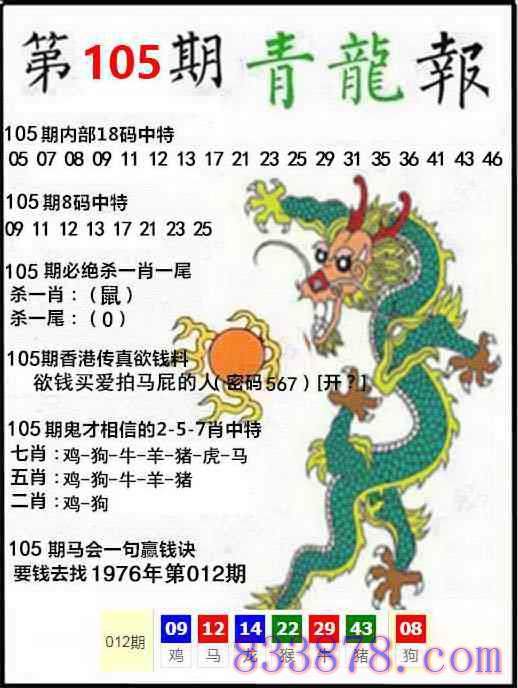 第105期青龍報
105期内部18码中特
05 07 08 09 11 12 13 17 21 23 25 29 31 35 36 41 43 46
105期8码中特
09 11 12 13 17 21 23 25
105期必绝杀一肖一尾
杀一肖：（鼠）
杀一尾：（0）
105期香港传真欲钱料
欲钱买爱拍马屁的人(密码567)[开？]
105期鬼才相信的2-5-7肖中特
七肖：鸡-狗-牛-羊-猪-虎-马
五肖：鸡-狗-牛-羊-猪
二肖：鸡-狗
105期马会一句赢钱诀
要钱去找1976年第012期
012期 09 12 14 22 29 43 08
鸡 马 龙 猴 牛 猪 狗
833878.com